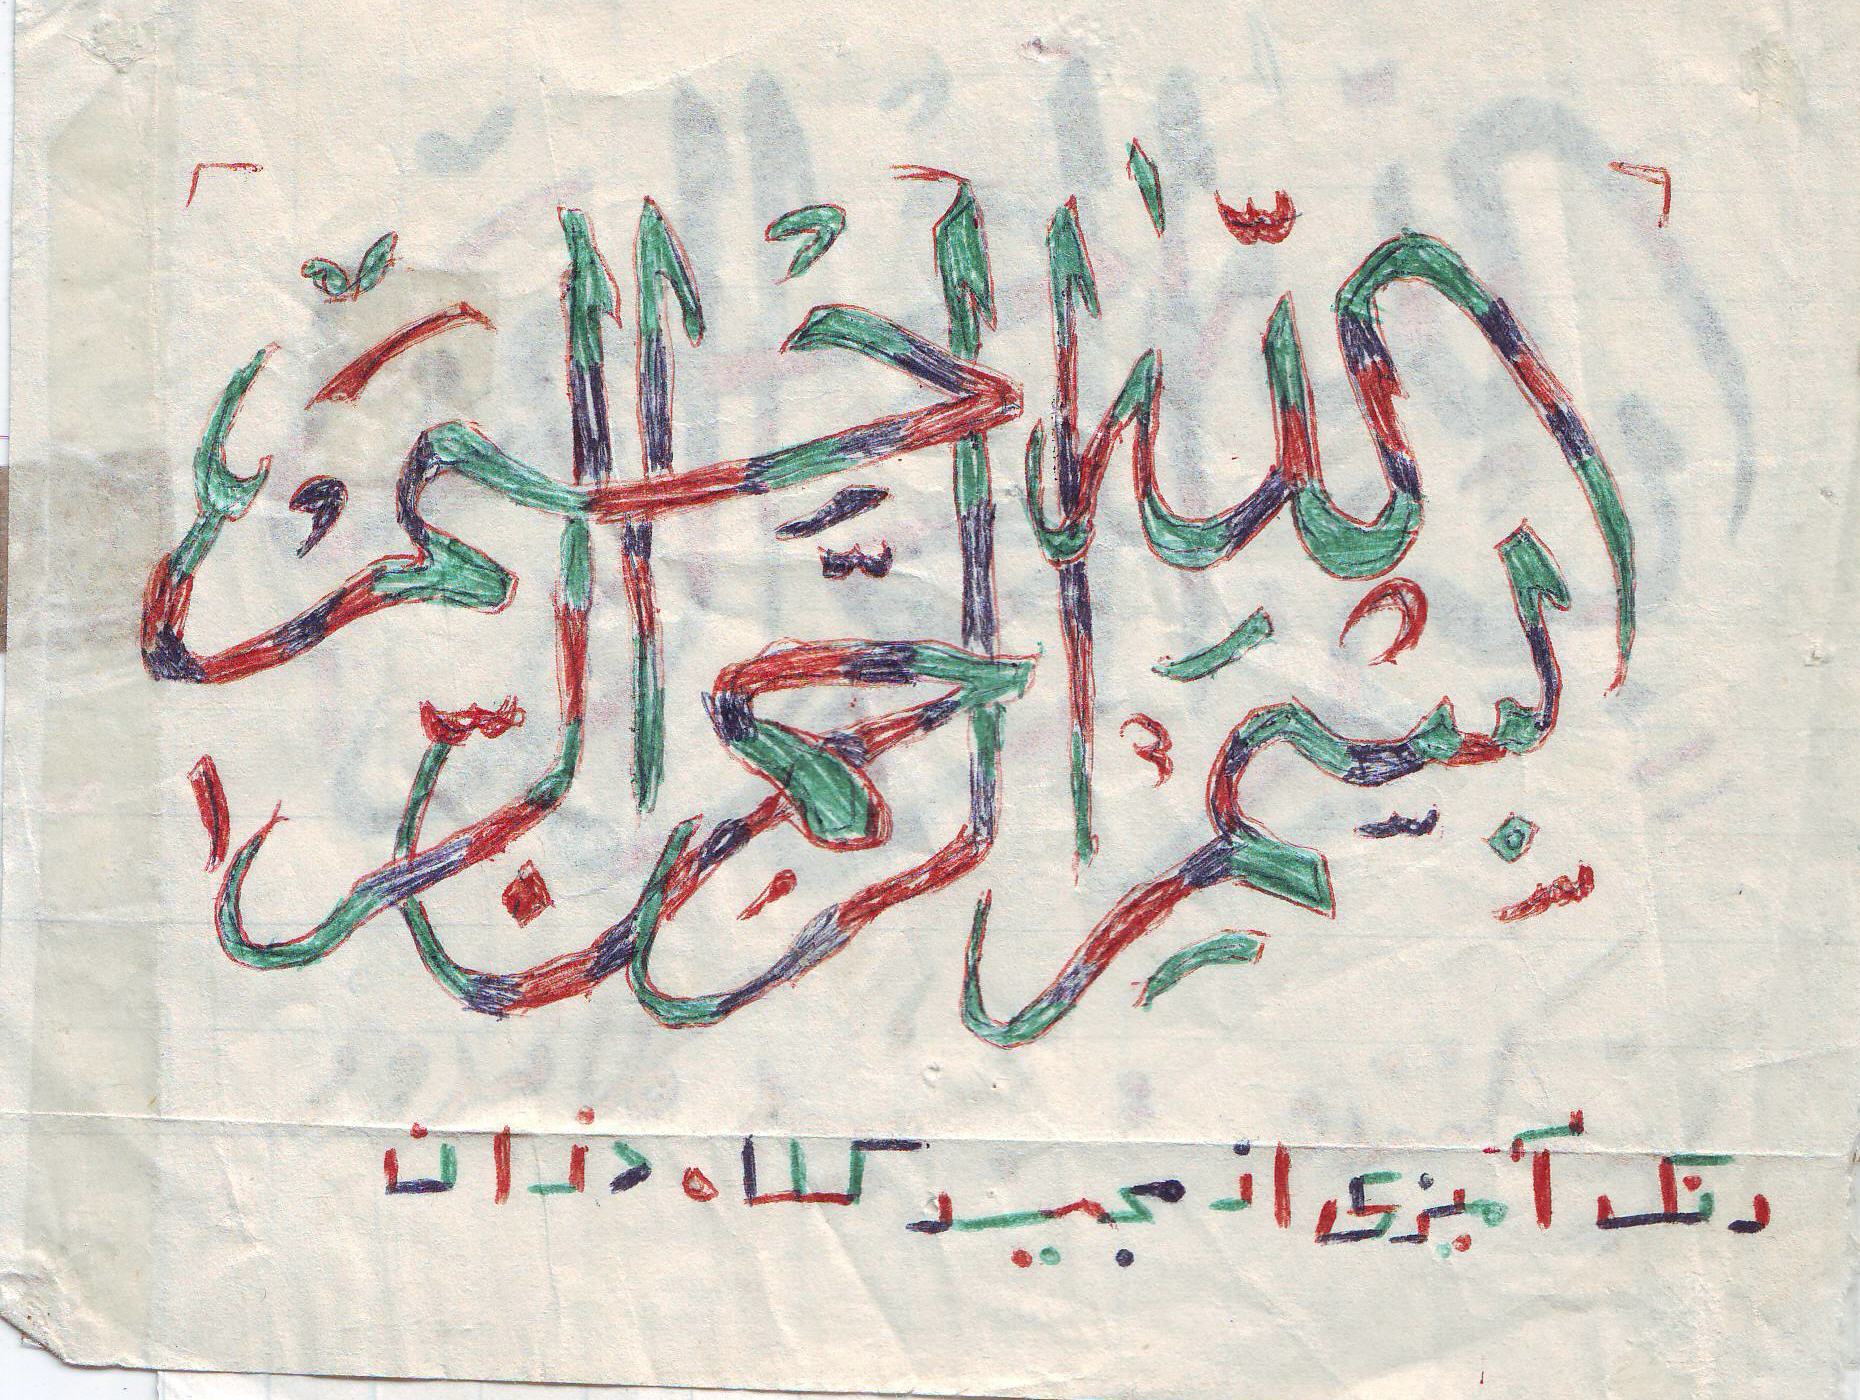 بسم الله الرحمن الرحیم
رنگ آمیزی از مجید کلاه دزان